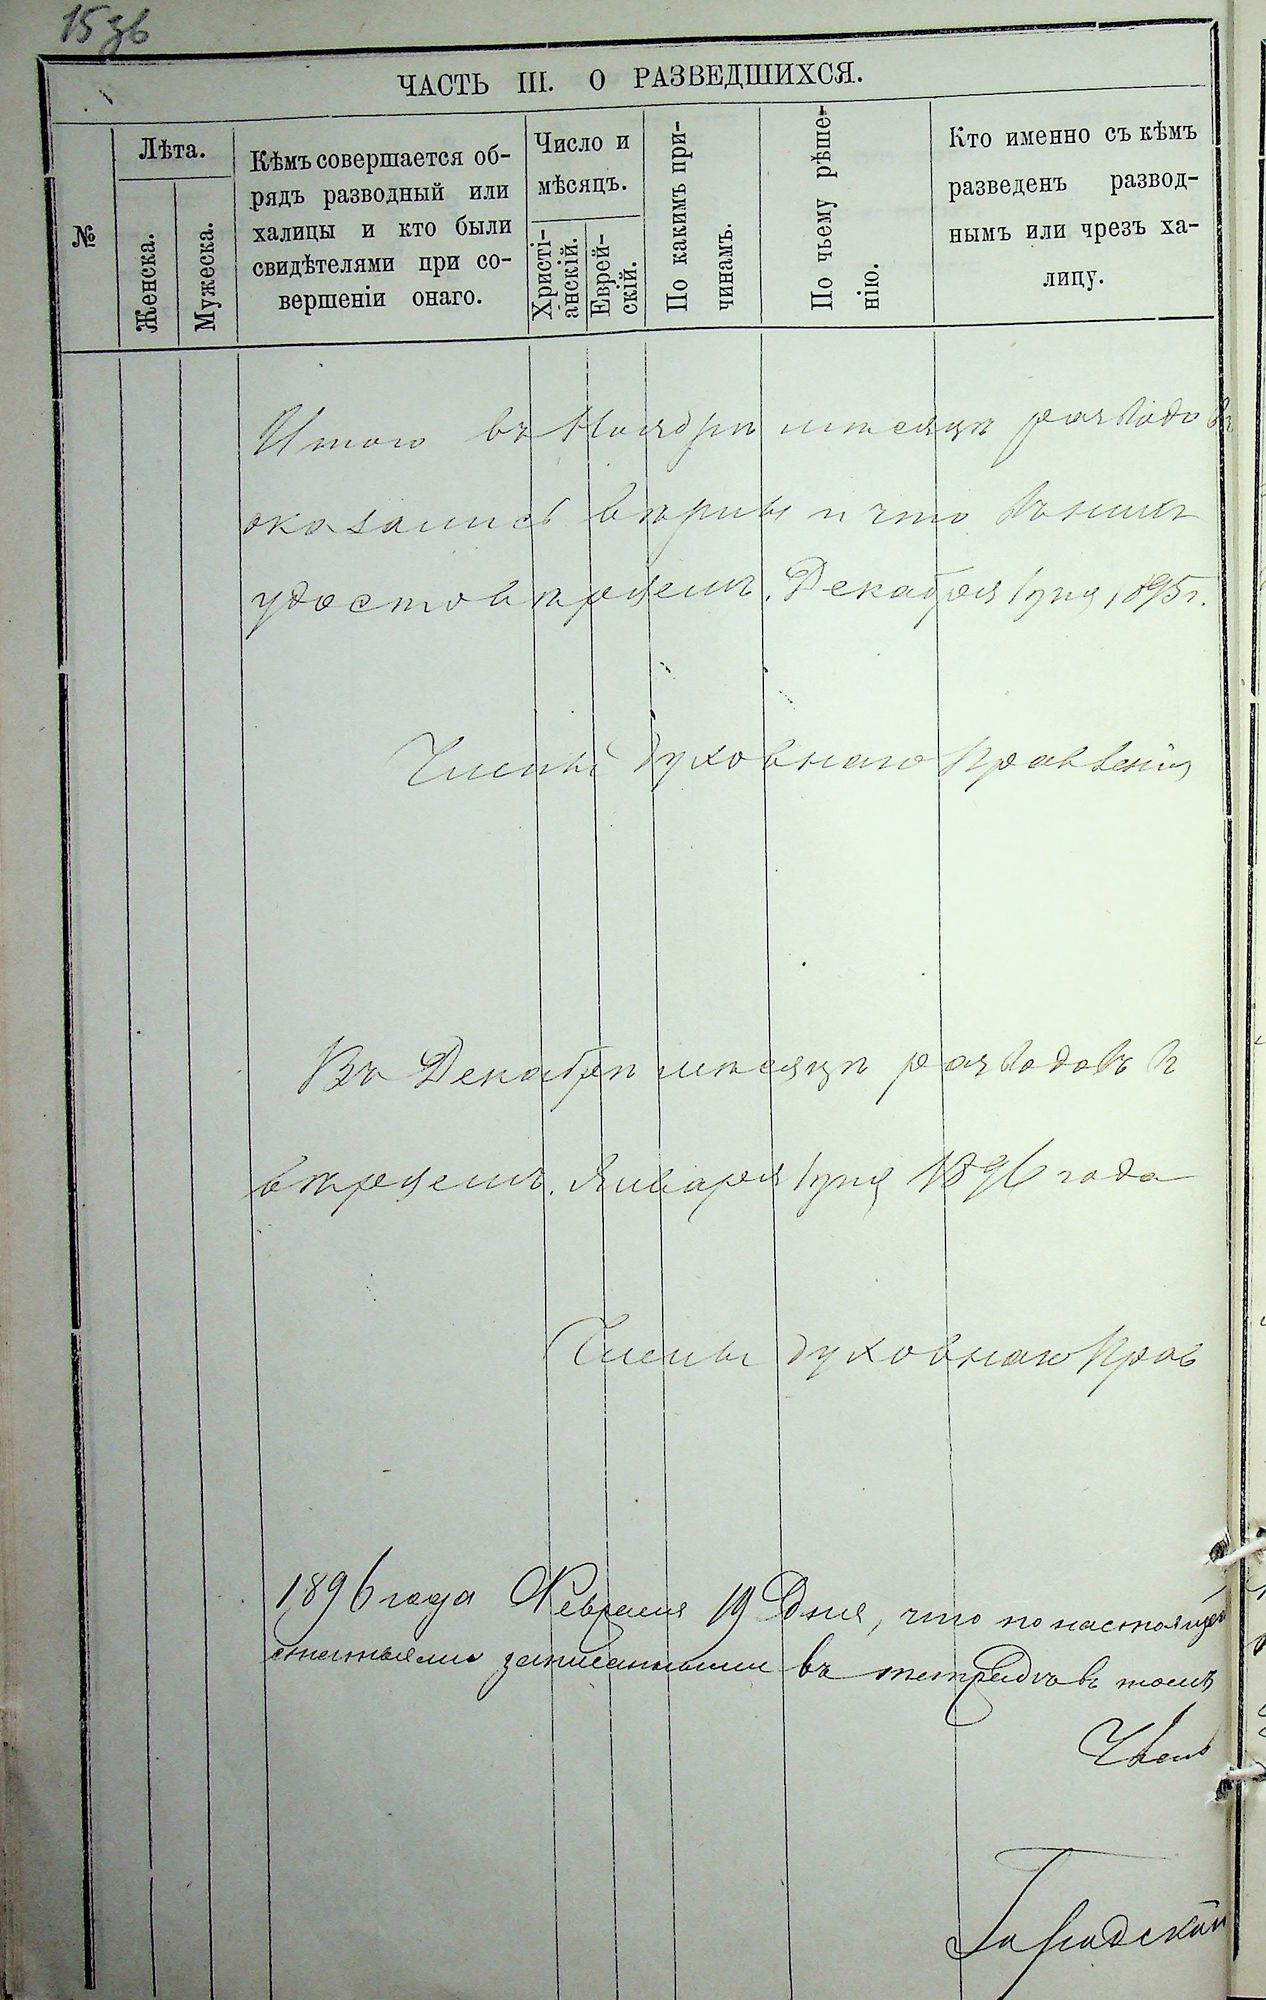 15зв
ЧАСТЬ III. О РАЗВЕДШИХСЯ.
№
Лѣта.
Женска.
Мужеска.
Кѣмъ совершается об-
рядъ разводный или
халицы и кто были
свидѣтелями при со-
вершеніи онаго.
Число и
мѣсяцъ.
Христі-
анскій.
Еврей-
скій.
По какимъ при-
чинамъ.
По чьему рѣше-
нію.
Кто именно съ кѣмъ
разведенъ развод-
нымъ или чрезъ ха-
лицу.
Итого въ Ноябрѣ мѣсяцѣ разводовъ
оказались вѣрны и что въ нихъ
удостовѣряемъ. Декабря 1 дня 1895 г.
Члены духовнаго Правленія
Въ Декабрѣ мѣсяцѣ разводовъ н
вѣряемъ. Января 1 дня 1896 года
Члены духовнаго Прав
1896 года Февраля 19 Дня, что по настоящей
статьями записанными въ тетрадь въ томъ
Член
Городской